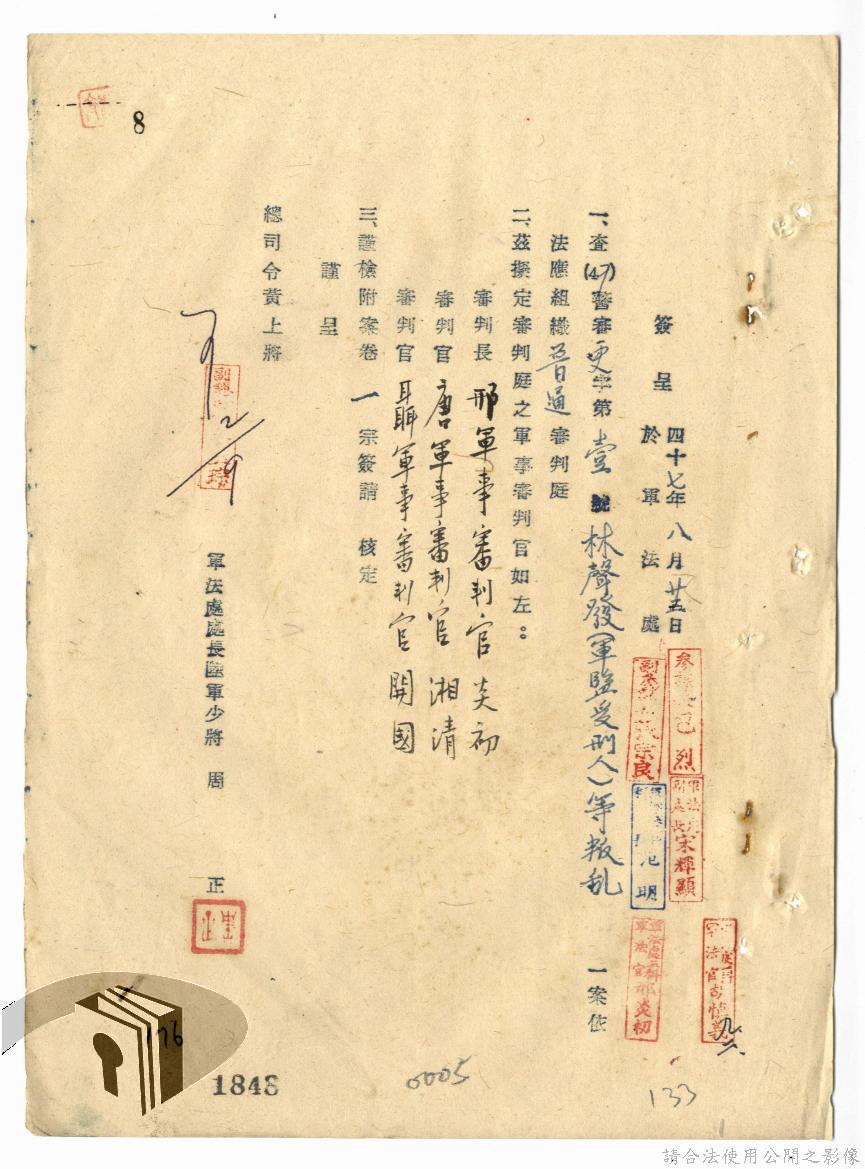 8
簽呈 四十七年八月廿五日
於軍法處
一、查(47)警審更字第壹號林聲發(軍監受刑人)等叛乱一案依
法應組織普通審判庭
二、茲擬定審判庭之軍事審判官如左：
審判長 邢軍事審判官炎初
審判官 唐軍事審判官湘清
審判官 聶軍事審判官開國
三、謹檢附案卷一宗簽請 核定
謹呈
總司令黃上將
軍法處處長陸軍少將周 正
烈
宗良
宋輝顯
范明
軍法官邢炎初
軍法官
九、二
2/9
176
1848
0005
133
請合法使用公開之影像